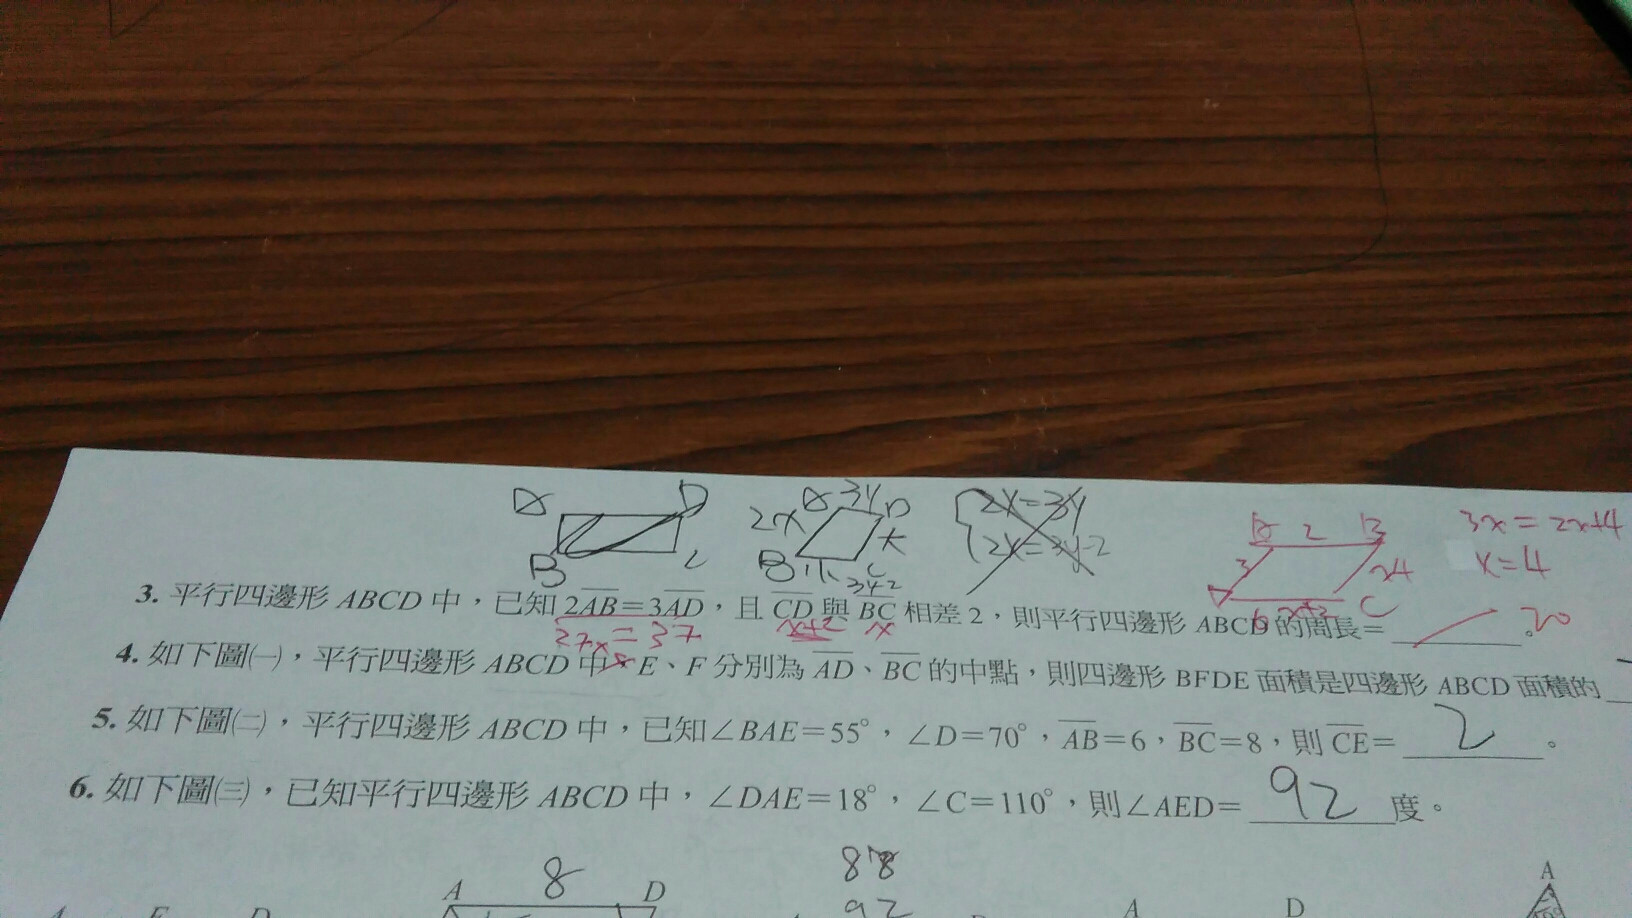 A D
B C
2x A 3y D
B 3y-2 C
2x=3y
2x=3y-2
A 2 B
3
C
3x=2x+4
x=4
3. 平行四邊形 ABCD 中，已知 2AB=3AD，且 CD 與 BC 相差 2，則平行四邊形 ABCD 的周長=＿＿。20
x+2 x
4. 如下圖㈠，平行四邊形 ABCD 中，E、F 分別為 AD、BC 的中點，則四邊形 BFDE 面積是四邊形 ABCD 面積的
5. 如下圖㈡，平行四邊形 ABCD 中，已知∠BAE=55°，∠D=70°，AB=6，BC=8，則 CE= 2 。
6. 如下圖㈢，已知平行四邊形 ABCD 中，∠DAE=18°，∠C=110°，則∠AED= 92 度。
88
92
A 8 D
A E D
A D
A